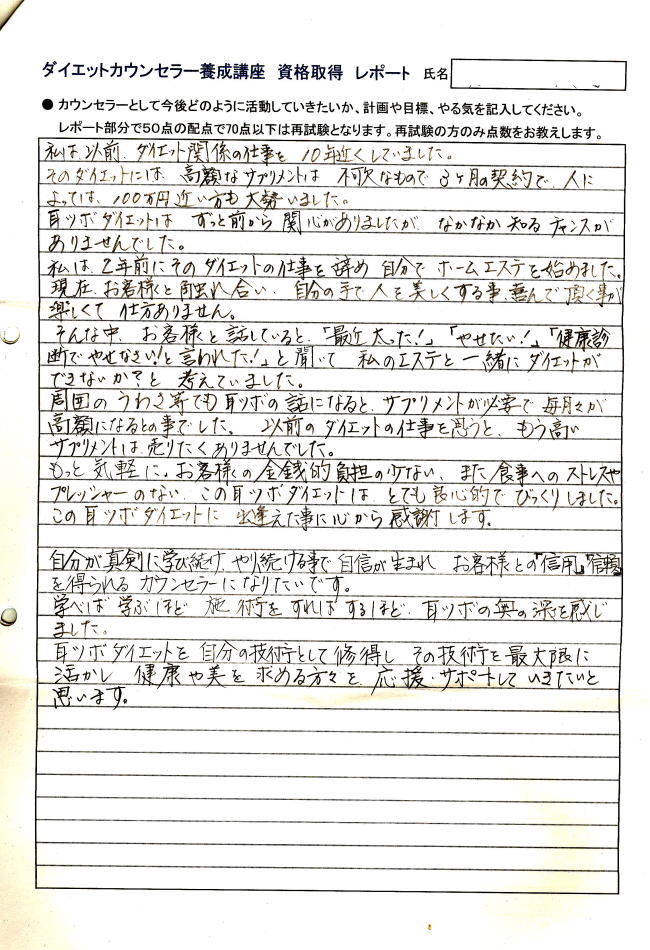 ダイエットカウンセラー養成講座 資格取得 レポート 氏名
● カウンセラーとして今後どのように活動していきたいか、計画や目標、やる気を記入してください。
レポート部分で50点の配点で70点以下は再試験となります。再試験の方のみ点数をお教えします。
私は以前、ダイエット関係の仕事を 10年近くしていました。
そのダイエットには、高額なサプリメントは 不可欠なもので 3ヶ月の契約で、人に
よっては、100万円近い方も大勢いました。
耳ツボダイエットは ずっと前から 関心がありましたが、なかなか知るチャンスが
ありませんでした。
私は、2年前にそのダイエットの仕事を辞め 自分で ホームエステを始めました。
現在、お客様と触れ合い、自分の手で人を美しくする事、喜んで頂く事が
楽しくて 仕方ありません。
そんな中、お客様と話していると、「最近太った!」「やせたい!」「健康診
断でやせなさい!と言われた!」と聞いて 私のエステと一緒にダイエットが
できないか?と 考えていました。
周囲のうわさ等でも耳ツボの話になると、サプリメントが必要で毎月々が
高額になるとの事でした。以前のダイエットの仕事を思うと、もう高い
サプリメントは売りたくありませんでした。
もっと気軽に、お客様の金銭的負担の少ない、また食事へのストレスや
プレッシャーのない、この耳ツボダイエットは、とても良心的でびっくりしました。
この耳ツボダイエットに 出逢えた事に心から感謝します。
自分が真剣に学び続け、やり続ける事で自信が生まれ お客様との「信用」「信頼」
を得られるカウンセラーになりたいです。
学べば学ぶほど 施術をすればするほど、耳ツボの奥の深さを感じ
ました。
耳ツボダイエットを 自分の技術として修得し その技術を最大限に
活かし 健康や美を求める方々を 応援・サポートしていきたいと
思います。